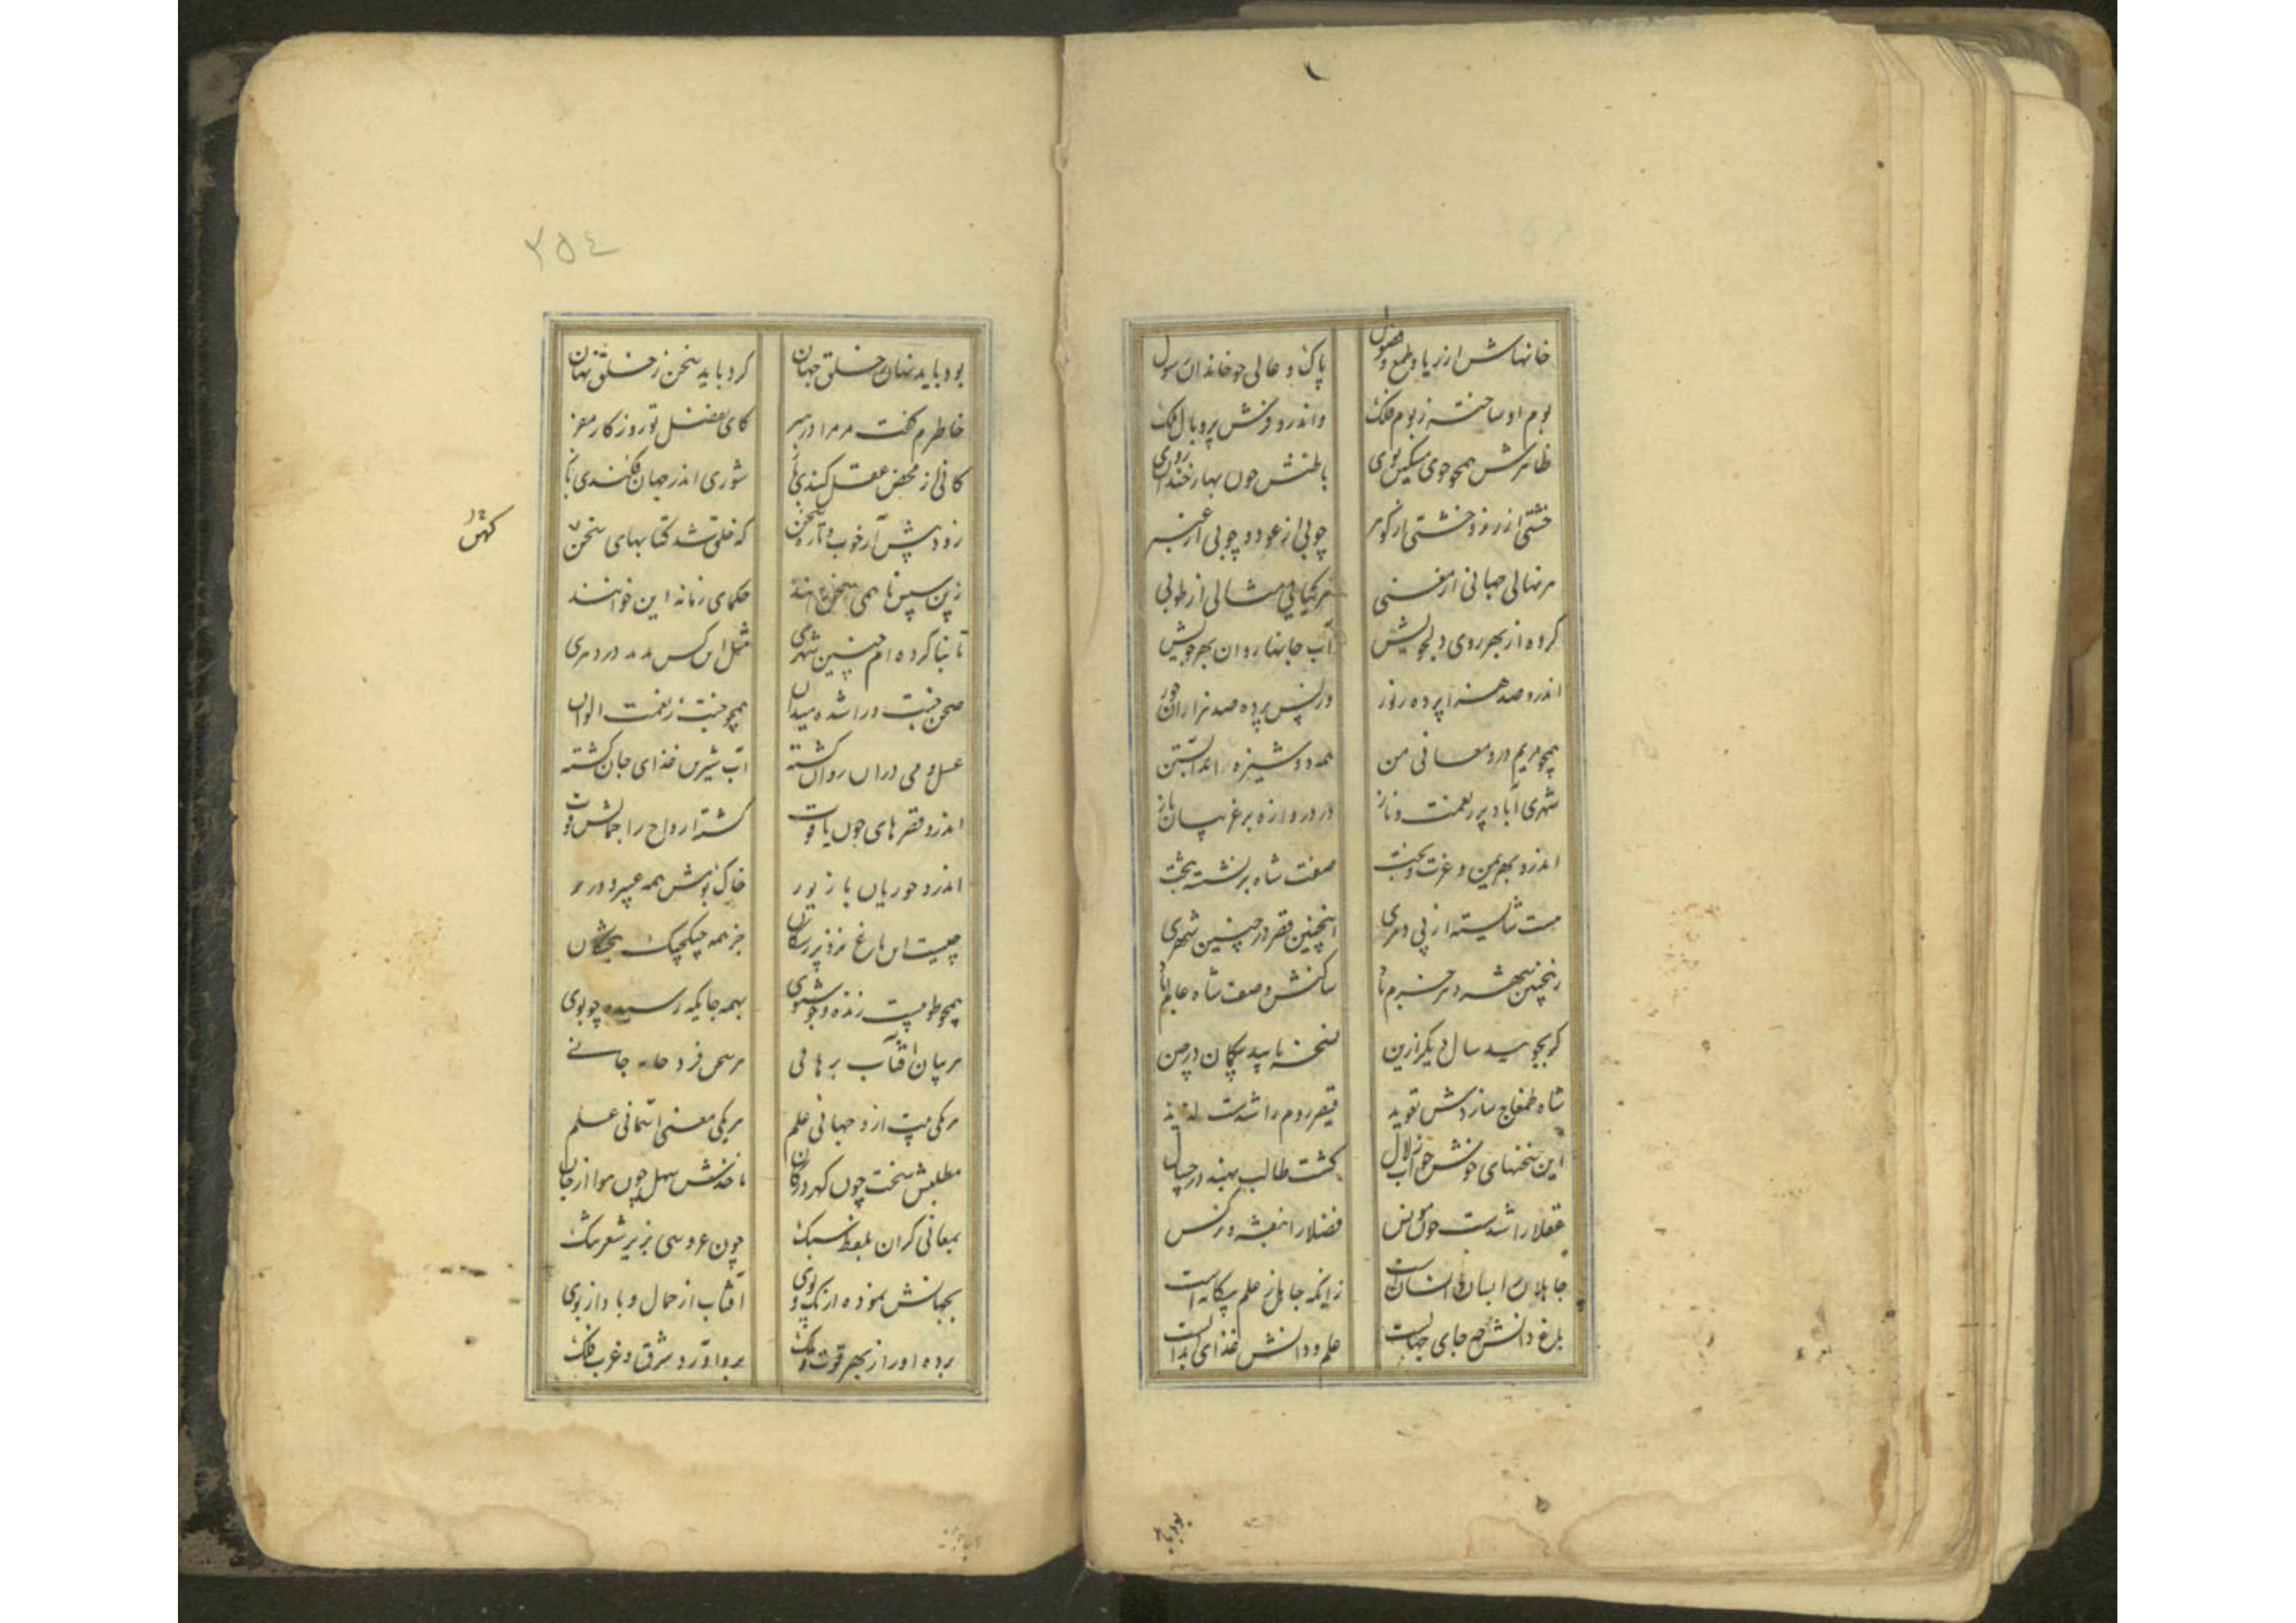 خانهاش از ریا و طمع و فضول
پاک و عالی چو خاندان رسول
بوم او ساخته ز بوم فلک
واندرو فرش پر و بال ملک
ظاهرش همچو جوی مشکین بوی
باطنش چون بهار خندان روی
خشتی از زر و خشتی از گوهر
چوبی از عود و چوبی از عنبر
هر نهالی جهانی از معنی
هر گیایی مثالی از طوبی
کرده از بهر روی دلجویش
آب جانها روان بهر جویش
اندرو صد هزار پرده ز نور
در پس پرده صد هزاران حور
همچو مریم درو معانی من
همه دوشیزه اند آبستن
شهری آباد پر ز نعمت و ناز
در دروازه بر غریبان باز
اندرو بهر یمن و عزت و بخت
صفت شاه بر نشسته بتخت
هست شایسته از پی دهری
اینچنین قصر در چنین شهری
زینچنین شهر خرم
ساکنش وصف شاه عالم باد
گر بجویند سال دیگر ازین
نسخه یابید بیگمان در چین
شاه طمغاج سازدش تعویذ
قیصر روم را شدست لذیذ
این سخنهای خوش چو آب زلال
گشت طالب بهند در چیپال
عقلا را شدست چون مونس
فضلا را بنفشه و نرگس
جاهلان را بسان افسانست
زانکه جاهل ز علم بیگانه است
باغ دانش نه جای جهالست
علم و دانش غذای ابدالست
بود باید
٣٥٤
بود باید نهان ز خلق جهان
کرد باید سخن ز خلق نهان
خاطرم گفت مر مرا در سر
کای بفضل تو روزگار مقر
کانی از محض عقل کندی باز
شوری اندر جهان فکندی باز
زود پیش آر خوب و تازه سخن
که خلق شد کتابهای سخن
کهن
زین سپس تا همی سخن رانند
حکمای زمانه این خوانند
تا بنا کرده ام چنین شهری
مثل این کس ندید در دهری
صحن جنت ورا شده میدان
همچو جنت ز نعمت الوان
عسل و می دران روان گشته
آب شیرین غذای جان گشته
اندرو قصرهای چون یاقوت
گشته ارواح را جمالش قوت
اندرو حوریان با زیور
خاک بومش همه عبیر و درر
چیست این باغ نزد پر رشکان
جز همه چیکچیک بجشکان
همچو طوبیست زنده و خوشبوی
بهمه جایگه رسیده چو بوی
هر بیان آفتاب برهانی
هر سخن فرد خانه جانی
هر یکی بیت ازو جهانی علم
هر یکی معنی آسمانی علم
مطلبش سخت چون گهر در کان
ماخذش سهل چون هوا از جان
بمعانی گران بلفظ سبک
چون عروسی بزیر شعر تنک
بجهانش نموده از تک و پوی
آفتاب از جمال و باد از بوی
برده او را ز بهر قوت ملک
برد و آورد شرق و غرب فلک